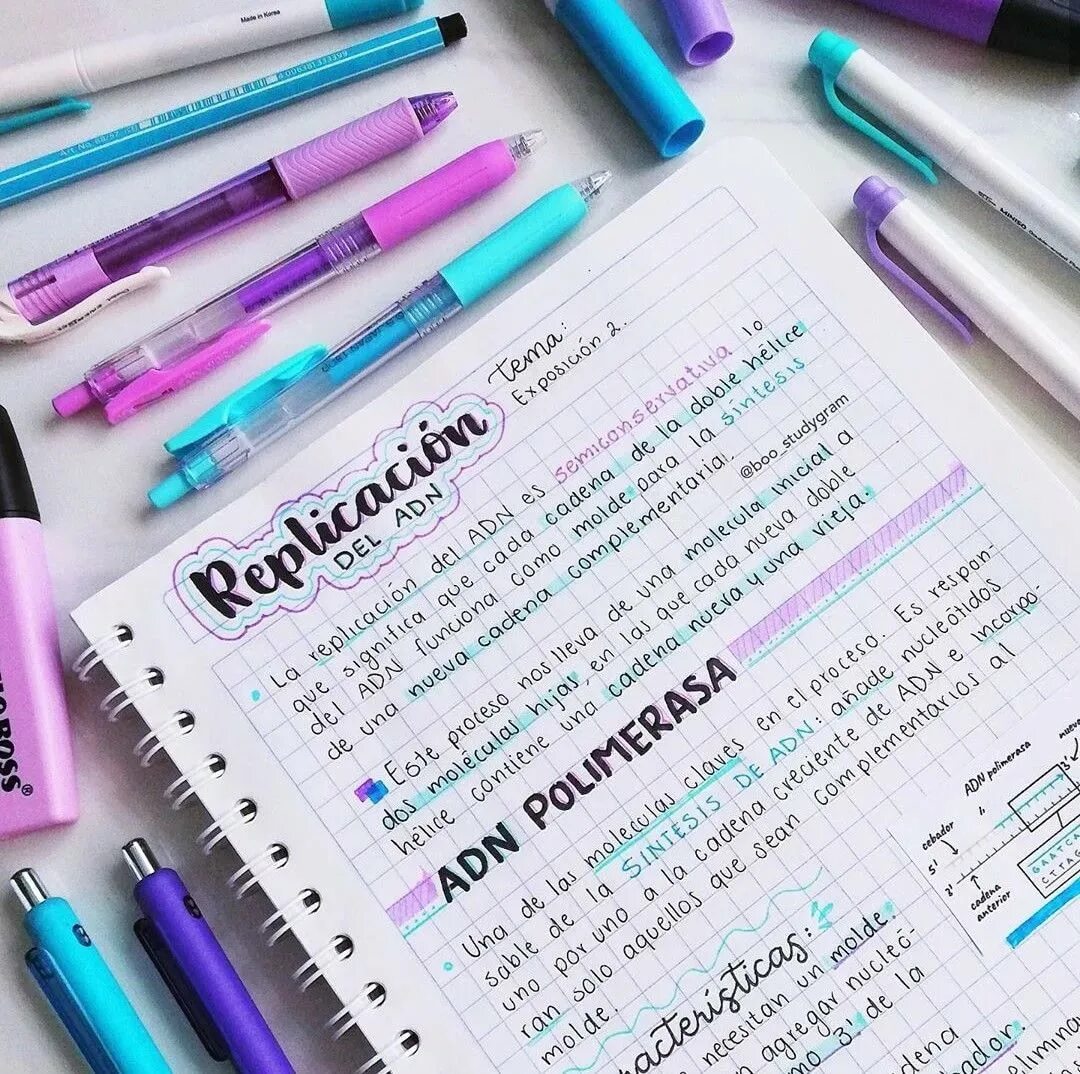 Made in Korea
Tema:
Exposición 2.
Replicación
DEL ADN
La replicación del ADN es semiconservativa lo
que significa que cada cadena de la doble hélice
del ADN funciona como molde para la síntesis
de una nueva cadena complementaria.
@boo_studygram
Este proceso nos lleva de una molécula inicial a
dos moléculas hijas, en las que cada nueva doble
hélice contiene una cadena nueva y una vieja.
ADN POLIMERASA
Una de las moléculas claves en el proceso. Es respon-
sable de la SINTESIS DE ADN: añade nucleótidos
uno por uno a la cadena creciente de ADN e incorpo-
ran solo aquellos que sean complementarios al
molde.
ADN polimerasa
cebador
5'
3'
cadena
anterior
GAATCA
CTTAG
racterísticas:
necesitan un molde.
agregar nucleó-
mo 3' de la
cadena
bador.
elimina
BOSS
MINISO